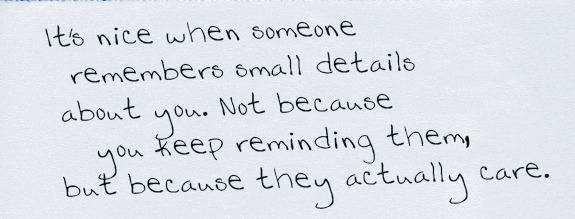 It's nice when someone
remembers small details
about you. Not because
you keep reminding them,
but because they actually care.